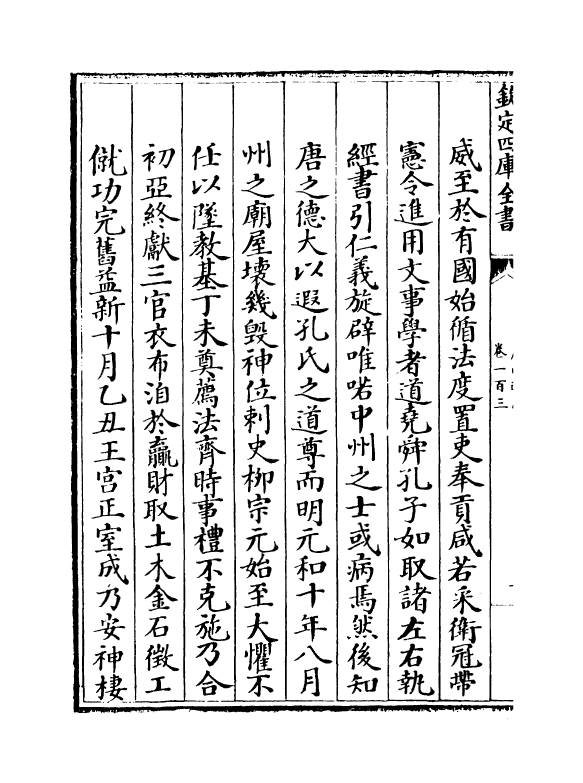 欽定四庫全書
卷一百三
威至於有國始循法度置吏奉貢咸若采衛冠帶
憲令進用文事學者道堯舜孔子如取諸左右執
經書引仁義旋辟唯喏中州之士或病焉然後知
唐之德大以遐孔氏之道尊而明元和十年八月
州之廟屋壞幾毁神位刺史柳宗元始至大懼不
任以墜教基丁未奠薦法齊時事禮不克施乃合
初亞終獻三官衣布洎於贏財取土木金石徵工
僦功完舊益新十月乙丑王宫正室成乃安神棲